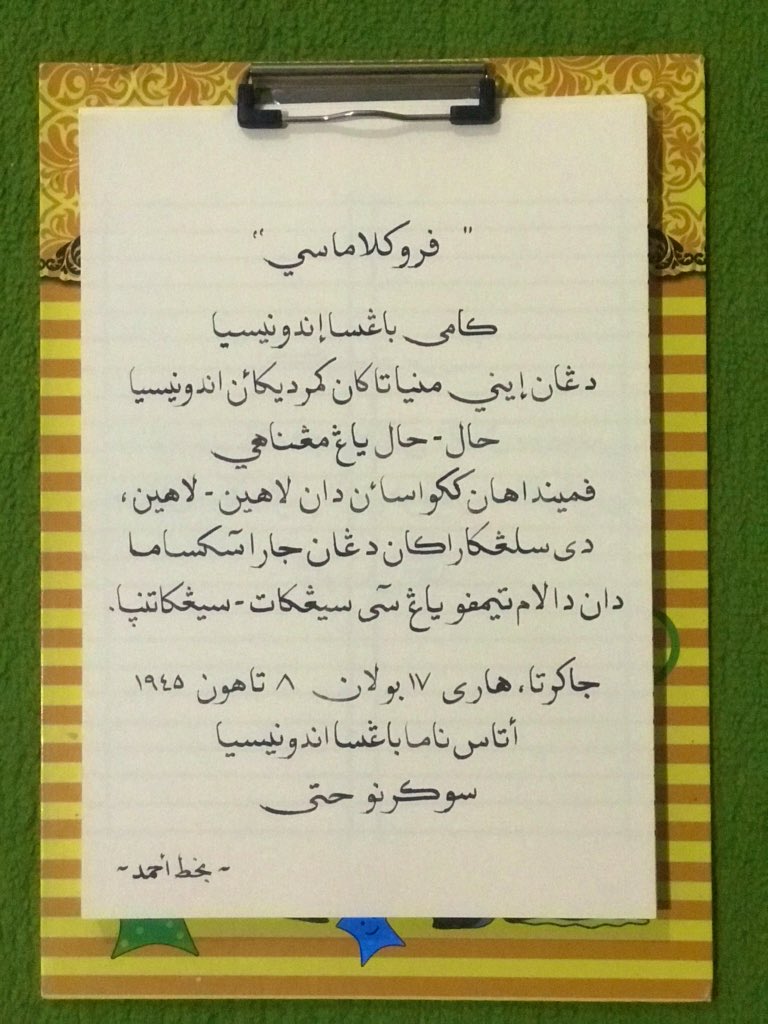 " فروكلاماسي "
كامى باڠسا إندونيسيا
دڠان إيني منياتاكان كمرديكائن اندونيسيا
حال - حال ياڠ مڠناهي
فمينداهان ككواسائن دان لاهين - لاهين،
دى سلڠكاراكان دڠان جارا سكساما
دان دالام تيمفو ياڠ سى سيڠكات - سيڠكاتنڽا.
جاكرتا، هارى ١٧ بولان ٨ تاهون ١٩٤٥
أتاس ناما باڠسا اندونيسيا
سوكرنو حتى
~ بخط أحمد ~